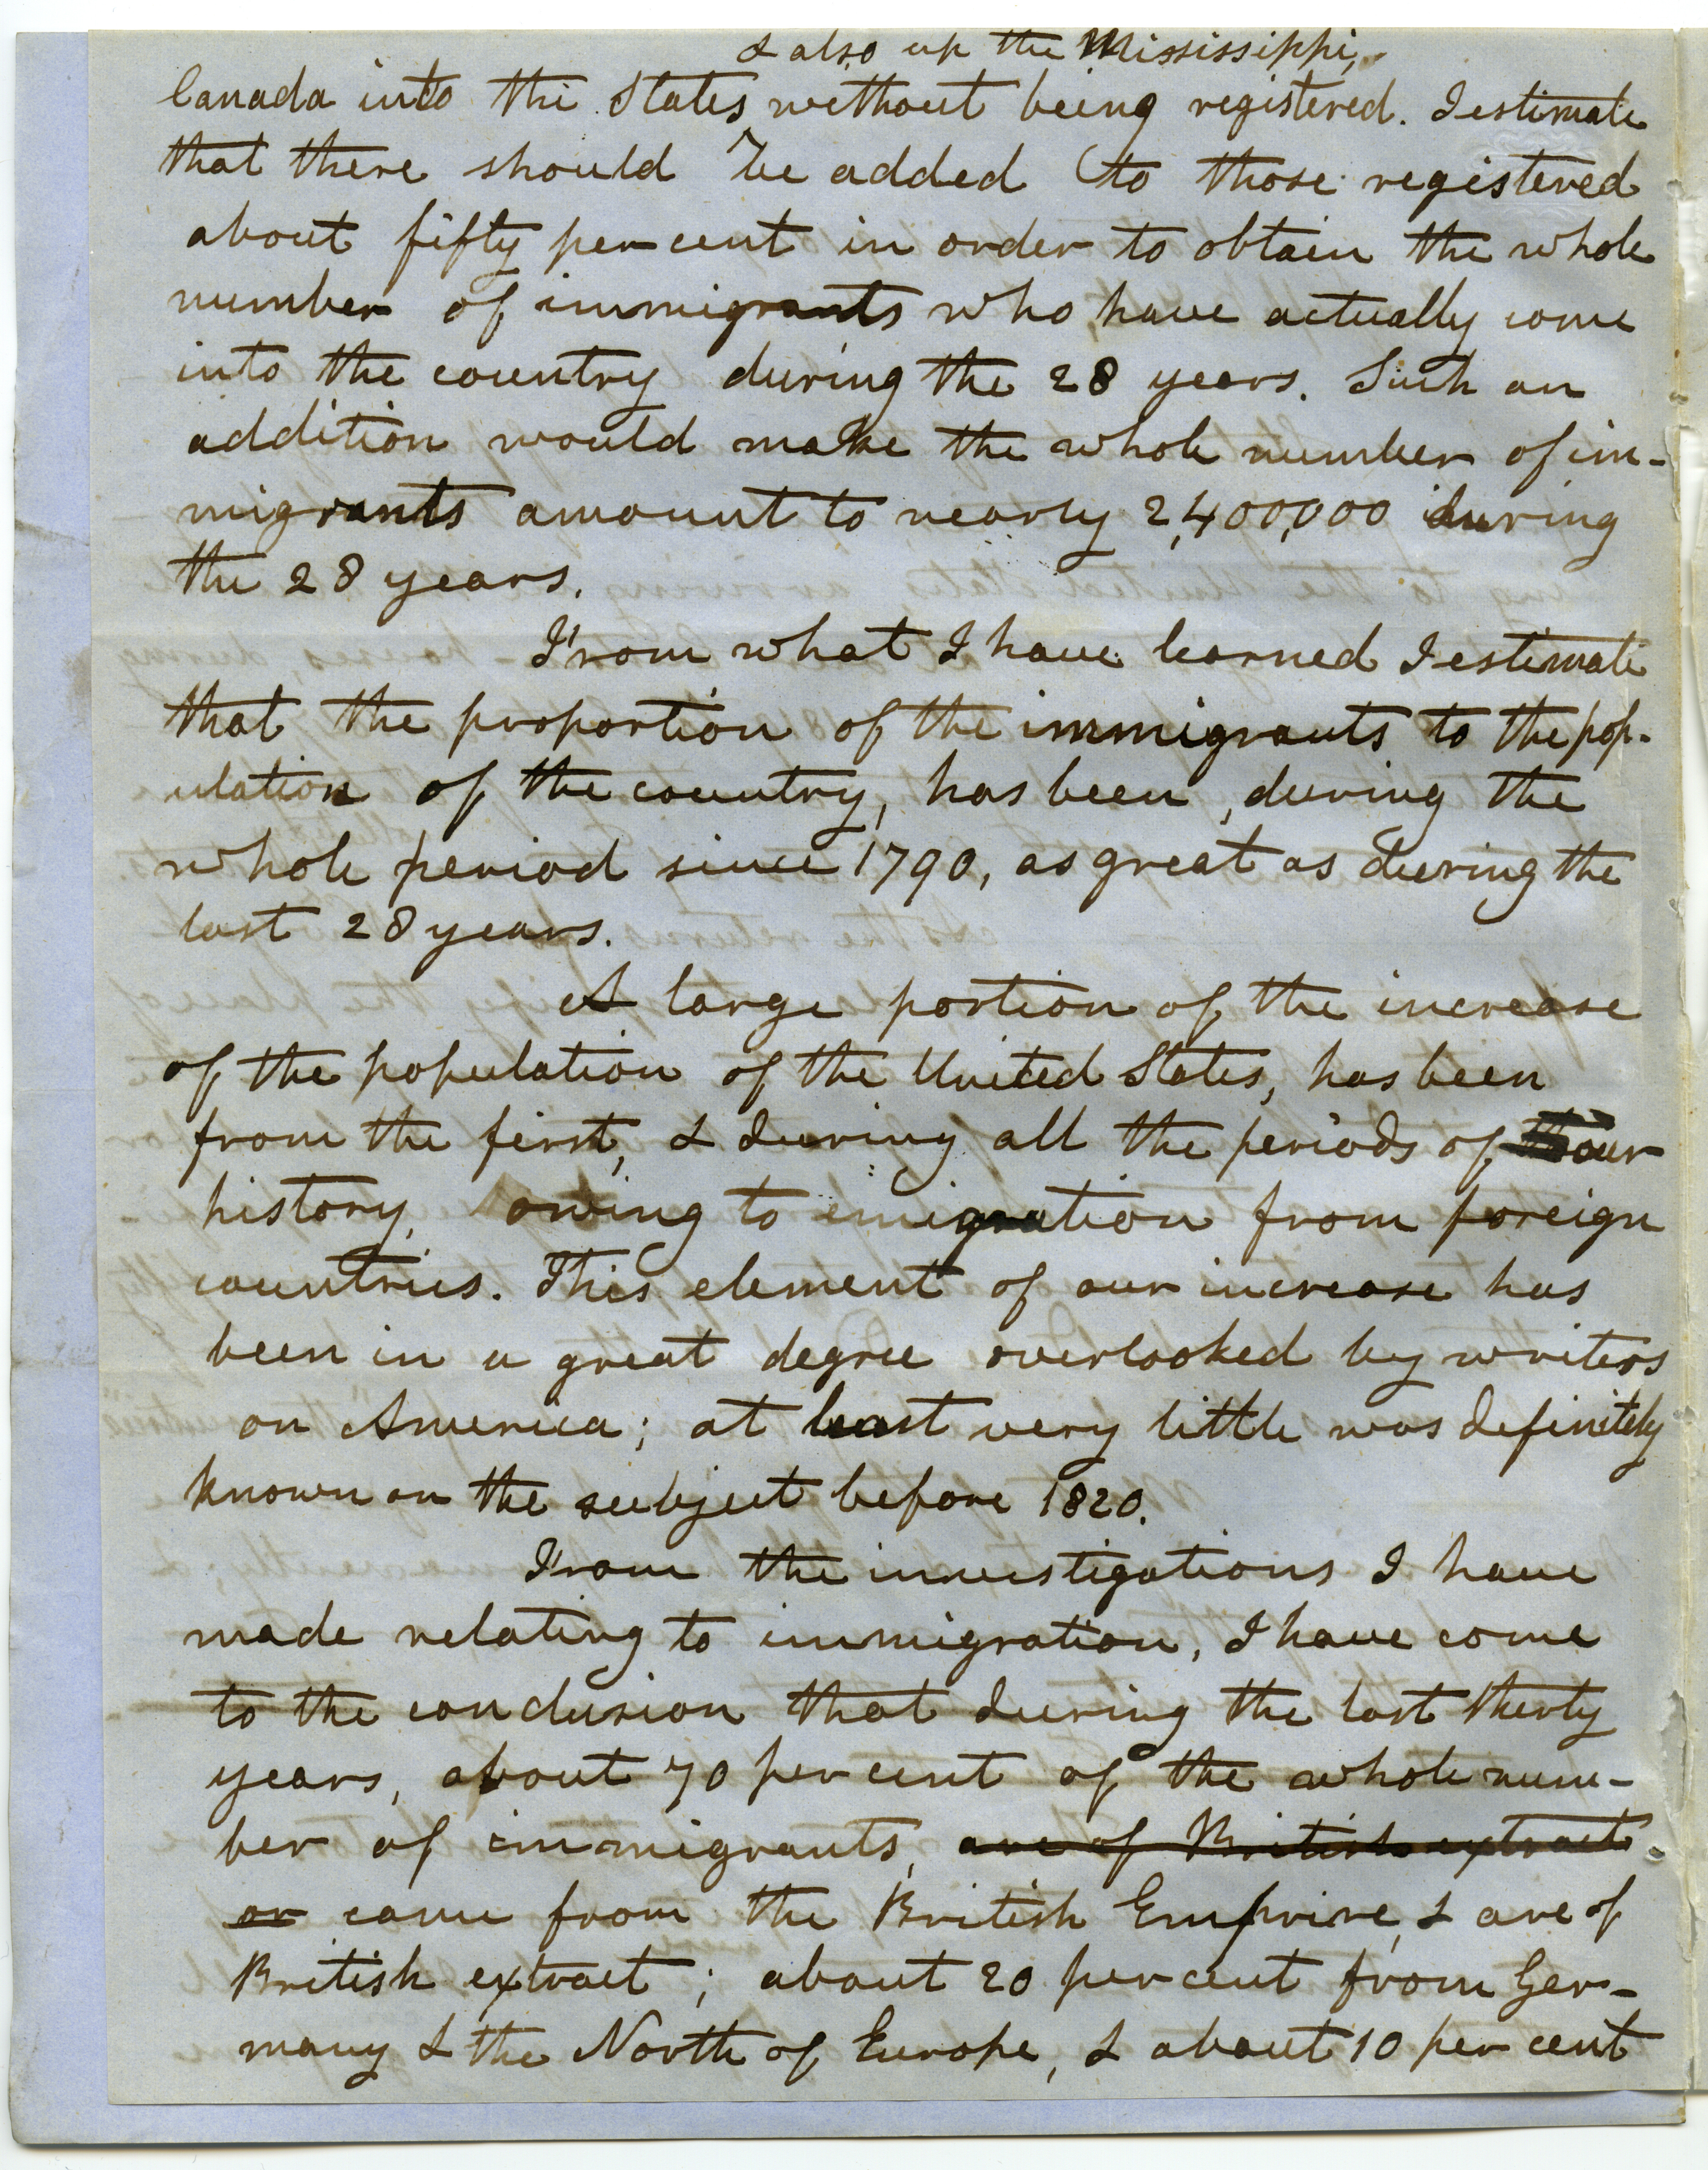 & also up the Mississippi,
Canada into the States without being registered. I estimate
that there should be added to those registered
about fifty per cent in order to obtain the whole
number of immigrants who have actually come
into the country during the 28 years. Such an
addition would make the whole number of im-
migrants amount to nearly 2,400,000 during
the 28 years.
From what I have learned I estimate
that the proportion of the immigrants to the pop-
ulation of the country, has been, during the
whole period since 1790, as great as during the
last 28 years.
A large portion of the increase
of the population of the United States, has been
from the first, & during all the periods of our
history, owing to emigration from foreign
countries. This element of our increase has
been in a great degree overlooked by writers
on America; at least very little was definitely
known on the subject before 1820.
From the investigations I have
made relating to immigration, I have come
to the conclusion that during the last thirty
years, about 70 per cent of the whole num-
ber of immigrants, are of British extract
or came from the British Empire, & are of
British extract; about 20 per cent from Ger-
many & the North of Europe, & about 10 per cent